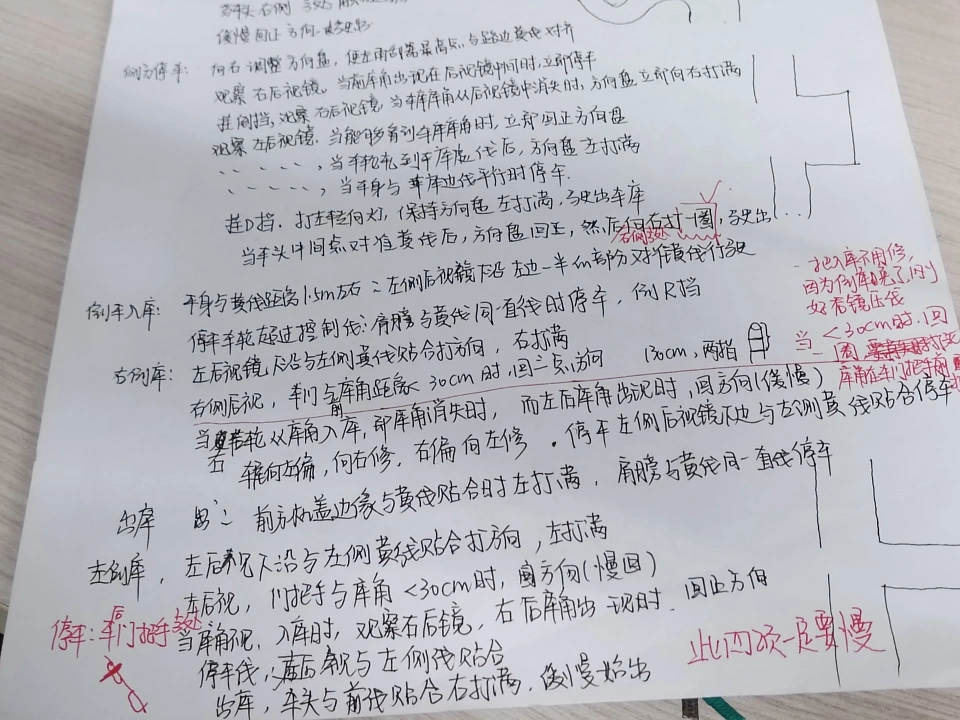 缓慢回正方向
侧方停车: 向右调整方向盘, 使左雨刮器最高点与路边黄线对齐
观察右后视镜, 当前库角出现在后视镜中间时, 立即停车
挂倒挡, 观察右后视镜, 当车库库角从后视镜中消失时, 方向盘立即向右打满
观察左后视镜, 当能够看到车库库角时, 立即回正方向盘
、、、、, 当车轮压到车库边线后, 方向盘左打满
、、、、、, 当车身与车库边线平行时停车.
挂D挡, 打左转向灯, 保持方向盘左打满, 驶出车库
当车头中间点对准黄线后, 方向盘回正, 然后向右打一圈, 驶出
倒车入库: 车身与黄线距离1.5m左右: 左侧后视镜下沿左边一半的部分对准黄线行驶
停车车轮超过控制线: 肩膀与黄线同一直线时停车, 倒R挡
右倒库: 左后视镜下沿与左侧黄线贴合打方向, 右打满
右侧后视, 车门与库角距离<30cm时, 回一点方向 (30cm, 两指
当 轮从库角入库, 即库角消失时, 而左后库角出现时, 回方向(缓慢)
右 车向左偏, 向右修, 右偏向左修. 停车左侧后视镜下边与左侧黄线贴合停车
出库 前方机盖边缘与黄线贴合时左打满, 肩膀与黄线同一直线停车
左倒库, 左后视下沿与左侧黄线贴合打方向, 左打满
左后视, 门把手与库角<30cm时, 回方向(慢回)
当库角 入库时, 观察右后镜, 右后库角出现时, 回正方向
停车线: 左后视与左侧线贴合
出库, 车头与前线贴合右打满, 缓慢驶出
把入库不用修,
因为倒库 了, 同时
好后镜压线
当<30cm时, 回
一圈
库角在车门把手
停车: 车后门把手
此四项一定要慢